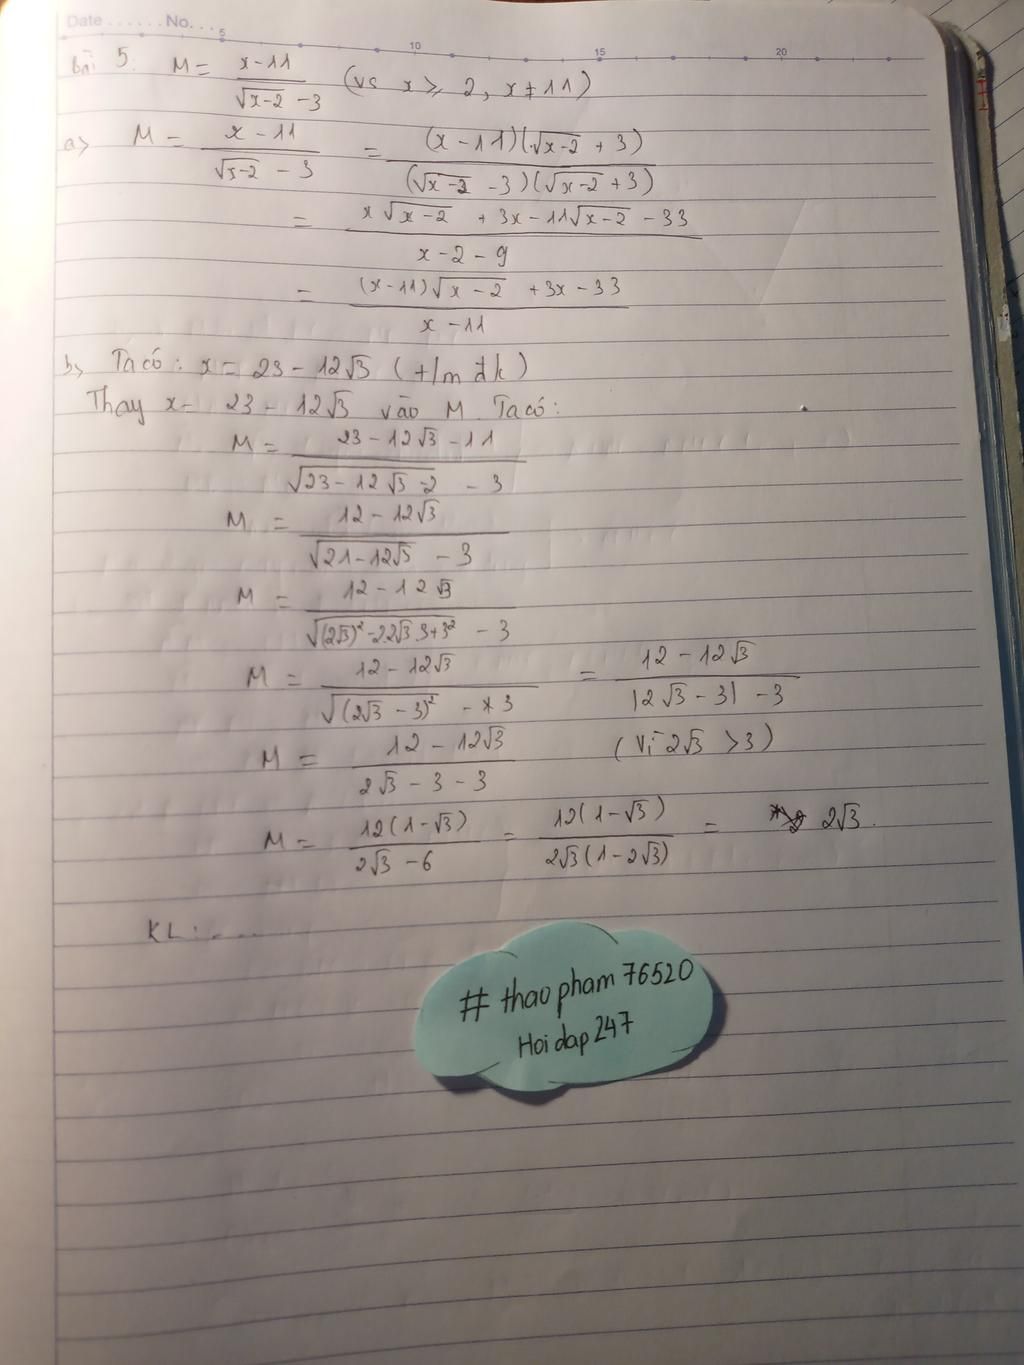 Date ...... No. ...
5 10 15 20
Bài 5: M = (x-11)/(√(x-2) -3) (vs x ⩾ 2, x ≠ 11)
a> M = (x-11)/(√(x-2) - 3) = ((x-11)(√(x-2) + 3))/((√(x-2) -3)(√(x-2) +3))
= (x√(x-2) + 3x - 11√(x-2) - 33)/(x-2-9)
= ((x-11)√(x-2) + 3x - 33)/(x-11)
b> Ta có: x = 23 - 12√3 (t/m đk)
Thay x = 23 - 12√3 vào M. Ta có:
M = (23 - 12√3 - 11)/(√(23 - 12√3 - 2) - 3)
M = (12 - 12√3)/(√(21 - 12√3) - 3)
M = (12 - 12√3)/(√((2√3)² - 2.2√3.3 + 3²) - 3)
M = (12 - 12√3)/(√((2√3 - 3)²) - 3) = (12 - 12√3)/(|2√3 - 3| - 3)
M = (12 - 12√3)/(2√3 - 3 - 3) (Vì 2√3 > 3)
M = (12(1-√3))/(2√3 - 6) = (12(1-√3))/(2√3(1-2√3)) = 2√3.
KL: ....
# thaopham76520
Hoidap247